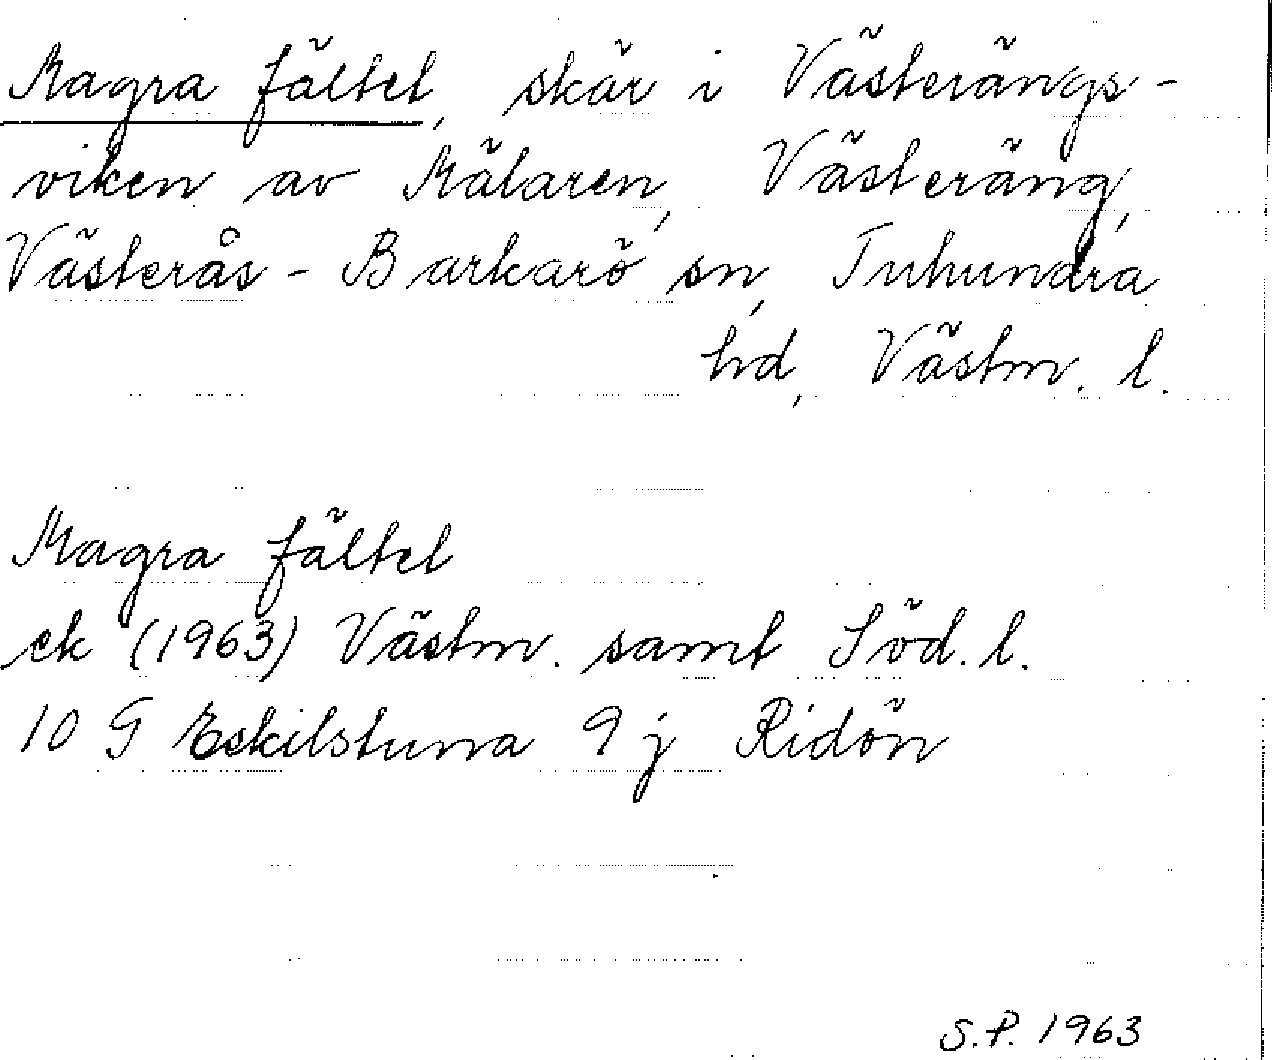 Magra fältet, skär i Västerängs-
viken av Mälaren, Västeräng,
Västerås-Barkarö sn, Tuhundra
hd, Västm. l.
Magra fältet
ek (1963) Västm. samt Söd. l.
10 G Eskilstuna 9 j Ridön
S.P. 1963